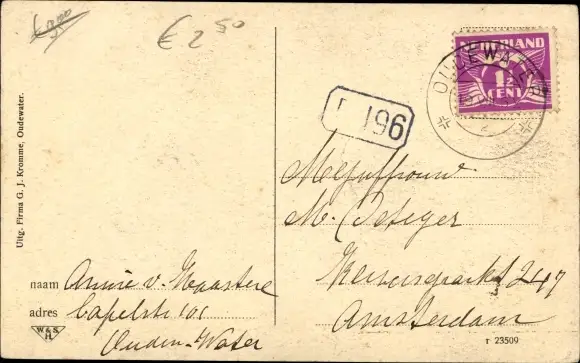 € 2 50
NEDERLAND
1½
CENT
OUDEWATER
196
Mejuffrouw
M.
Amsterdam
Uitg. Firma G. J. Kromme, Oudewater.
naam Annie v.
adres Capelstr 101
Ouden-Water
W&S
H
T 23509